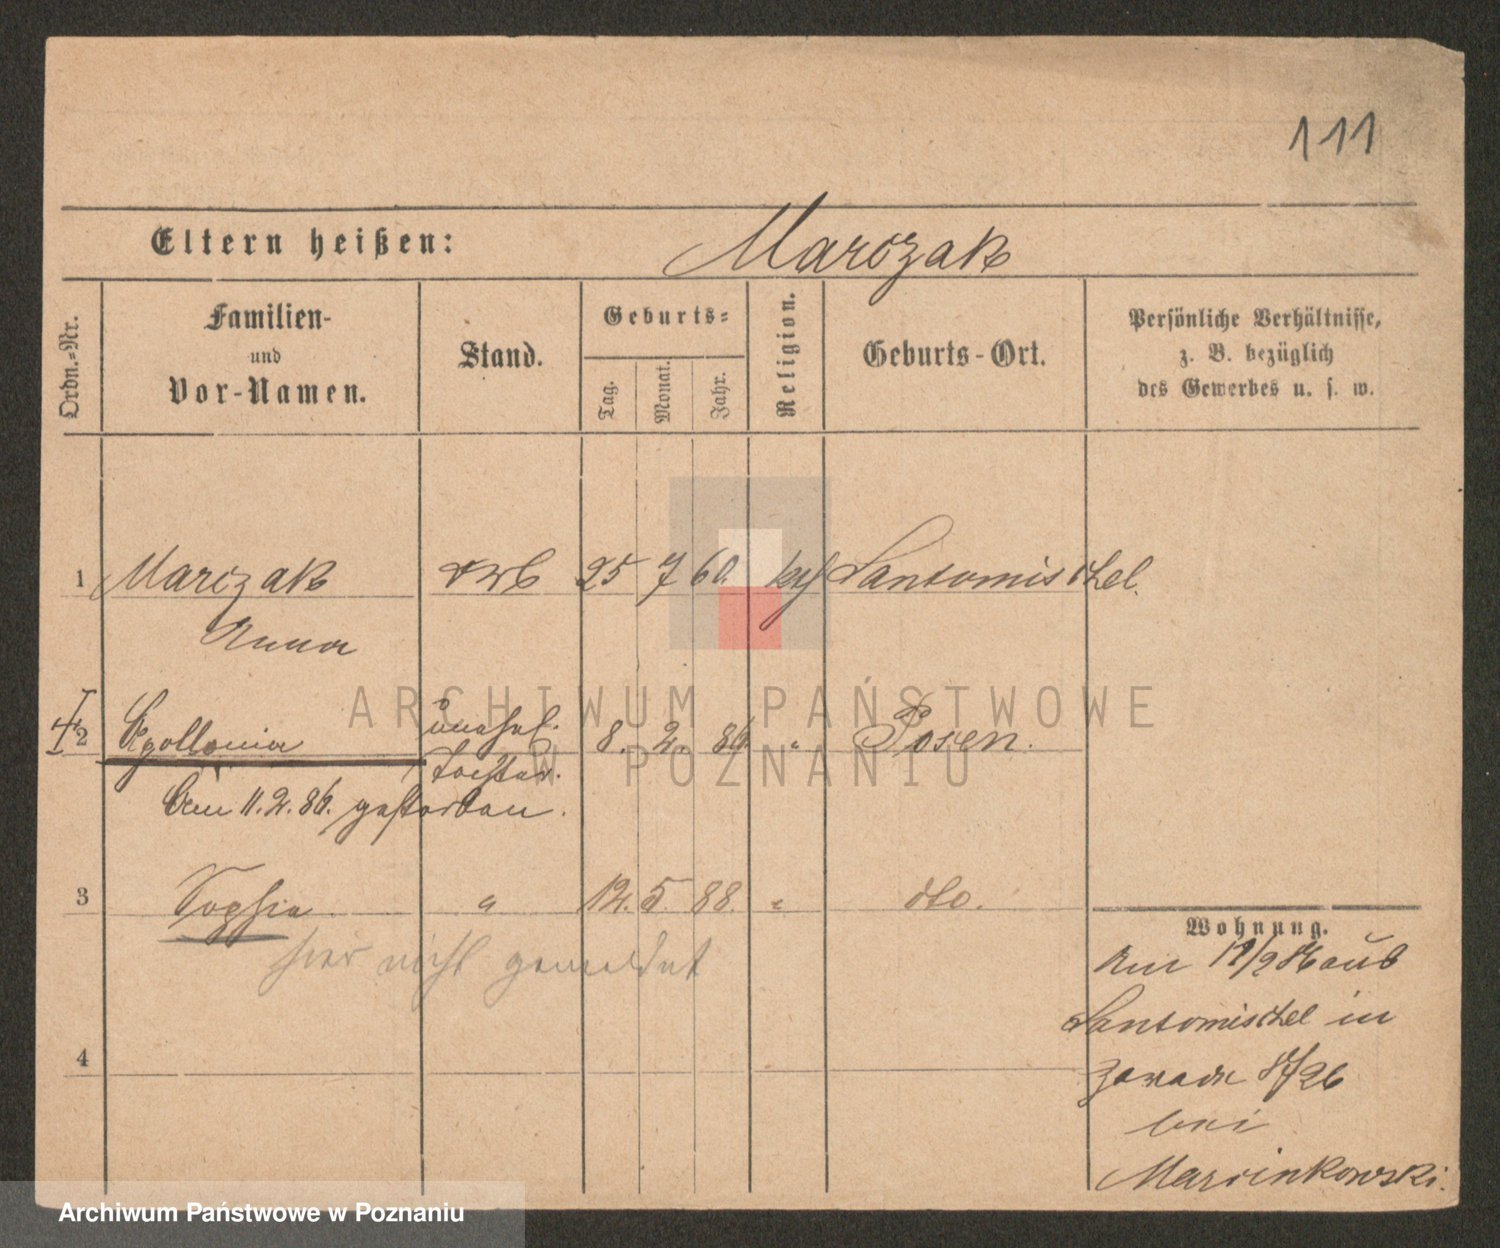 111
Eltern heißen: Marczak
Ordn.-Nr.
Familien-
und
Vor-Namen.
Stand.
Geburts-
Tag. Monat. Jahr.
Religion.
Geburts-Ort.
Persönliche Verhältnisse,
z. B. bezüglich
des Gewerbes u. s. w.
1 Marczak 25 7 60. kth Santomischel.
Anna
2 Apollonia unehel. 8. 2. 86 " Posen.
Tochter.
Am 11.2.86. gestorben.
3 Sophia " 12. 5 88. " dto.
hier nicht gemeldet
4
Wohnung.
Am
Santomischel in
Zawade 8/26
bei
Marcinkowski.
ARCHIWUM PAŃSTWOWE
W POZNANIU
Archiwum Państwowe w Poznaniu